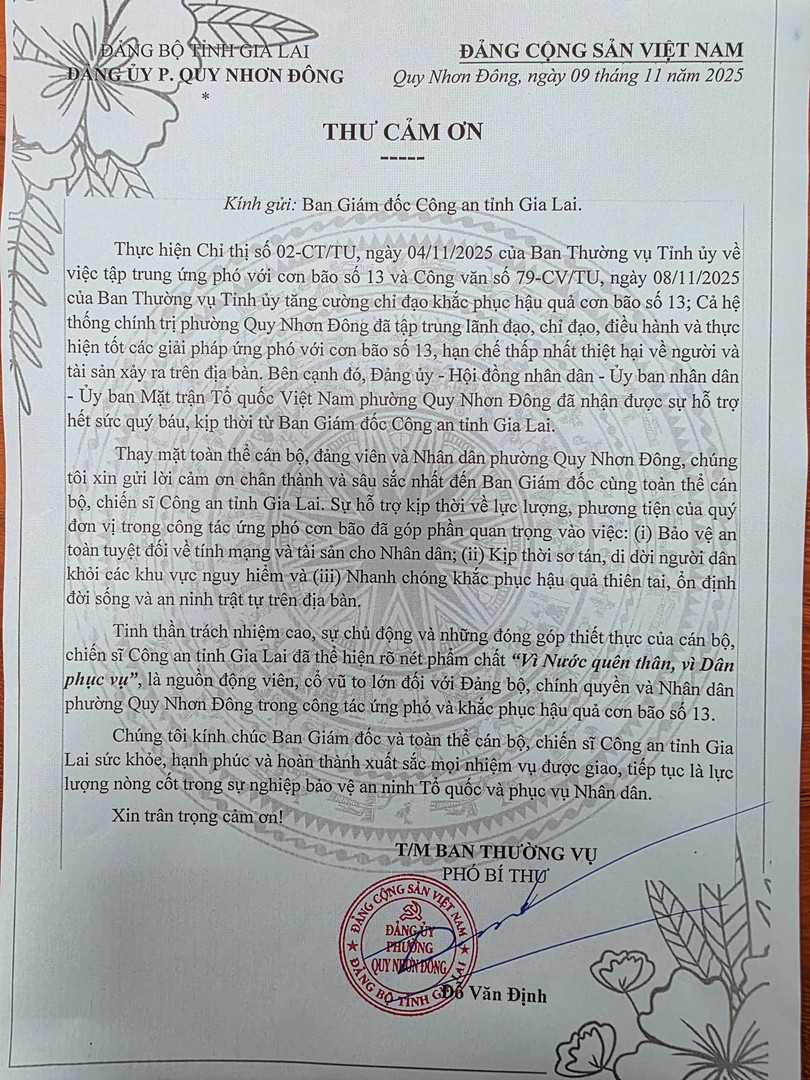 ĐẢNG BỘ TỈNH GIA LAI
ĐẢNG ỦY P. QUY NHƠN ĐÔNG
*
ĐẢNG CỘNG SẢN VIỆT NAM
Quy Nhơn Đông, ngày 09 tháng 11 năm 2025
THƯ CẢM ƠN
-----
Kính gửi: Ban Giám đốc Công an tỉnh Gia Lai.
Thực hiện Chỉ thị số 02-CT/TU, ngày 04/11/2025 của Ban Thường vụ Tỉnh ủy về
việc tập trung ứng phó với cơn bão số 13 và Công văn số 79-CV/TU, ngày 08/11/2025
của Ban Thường vụ Tỉnh ủy tăng cường chỉ đạo khắc phục hậu quả cơn bão số 13; Cả hệ
thống chính trị phường Quy Nhơn Đông đã tập trung lãnh đạo, chỉ đạo, điều hành và thực
hiện tốt các giải pháp ứng phó với cơn bão số 13, hạn chế thấp nhất thiệt hại về người và
tài sản xảy ra trên địa bàn. Bên cạnh đó, Đảng ủy - Hội đồng nhân dân - Ủy ban nhân dân
- Ủy ban Mặt trận Tổ quốc Việt Nam phường Quy Nhơn Đông đã nhận được sự hỗ trợ
hết sức quý báu, kịp thời từ Ban Giám đốc Công an tỉnh Gia Lai.
Thay mặt toàn thể cán bộ, đảng viên và Nhân dân phường Quy Nhơn Đông, chúng
tôi xin gửi lời cảm ơn chân thành và sâu sắc nhất đến Ban Giám đốc cùng toàn thể cán
bộ, chiến sĩ Công an tỉnh Gia Lai. Sự hỗ trợ kịp thời về lực lượng, phương tiện của quý
đơn vị trong công tác ứng phó cơn bão đã góp phần quan trọng vào việc: (i) Bảo vệ an
toàn tuyệt đối về tính mạng và tài sản cho Nhân dân; (ii) Kịp thời sơ tán, di dời người dân
khỏi các khu vực nguy hiểm và (iii) Nhanh chóng khắc phục hậu quả thiên tai, ổn định
đời sống và an ninh trật tự trên địa bàn.
Tinh thần trách nhiệm cao, sự chủ động và những đóng góp thiết thực của cán bộ,
chiến sĩ Công an tỉnh Gia Lai đã thể hiện rõ nét phẩm chất “Vì Nước quên thân, vì Dân
phục vụ”, là nguồn động viên, cổ vũ to lớn đối với Đảng bộ, chính quyền và Nhân dân
phường Quy Nhơn Đông trong công tác ứng phó và khắc phục hậu quả cơn bão số 13.
Chúng tôi kính chúc Ban Giám đốc và toàn thể cán bộ, chiến sĩ Công an tỉnh Gia
Lai sức khỏe, hạnh phúc và hoàn thành xuất sắc mọi nhiệm vụ được giao, tiếp tục là lực
lượng nòng cốt trong sự nghiệp bảo vệ an ninh Tổ quốc và phục vụ Nhân dân.
Xin trân trọng cảm ơn!
T/M BAN THƯỜNG VỤ
PHÓ BÍ THƯ
ĐẢNG CỘNG SẢN VIỆT NAM
ĐẢNG ỦY
PHƯỜNG
QUY NHƠN ĐÔNG
ĐẢNG BỘ TỈNH GIA LAI
Đỗ Văn Định